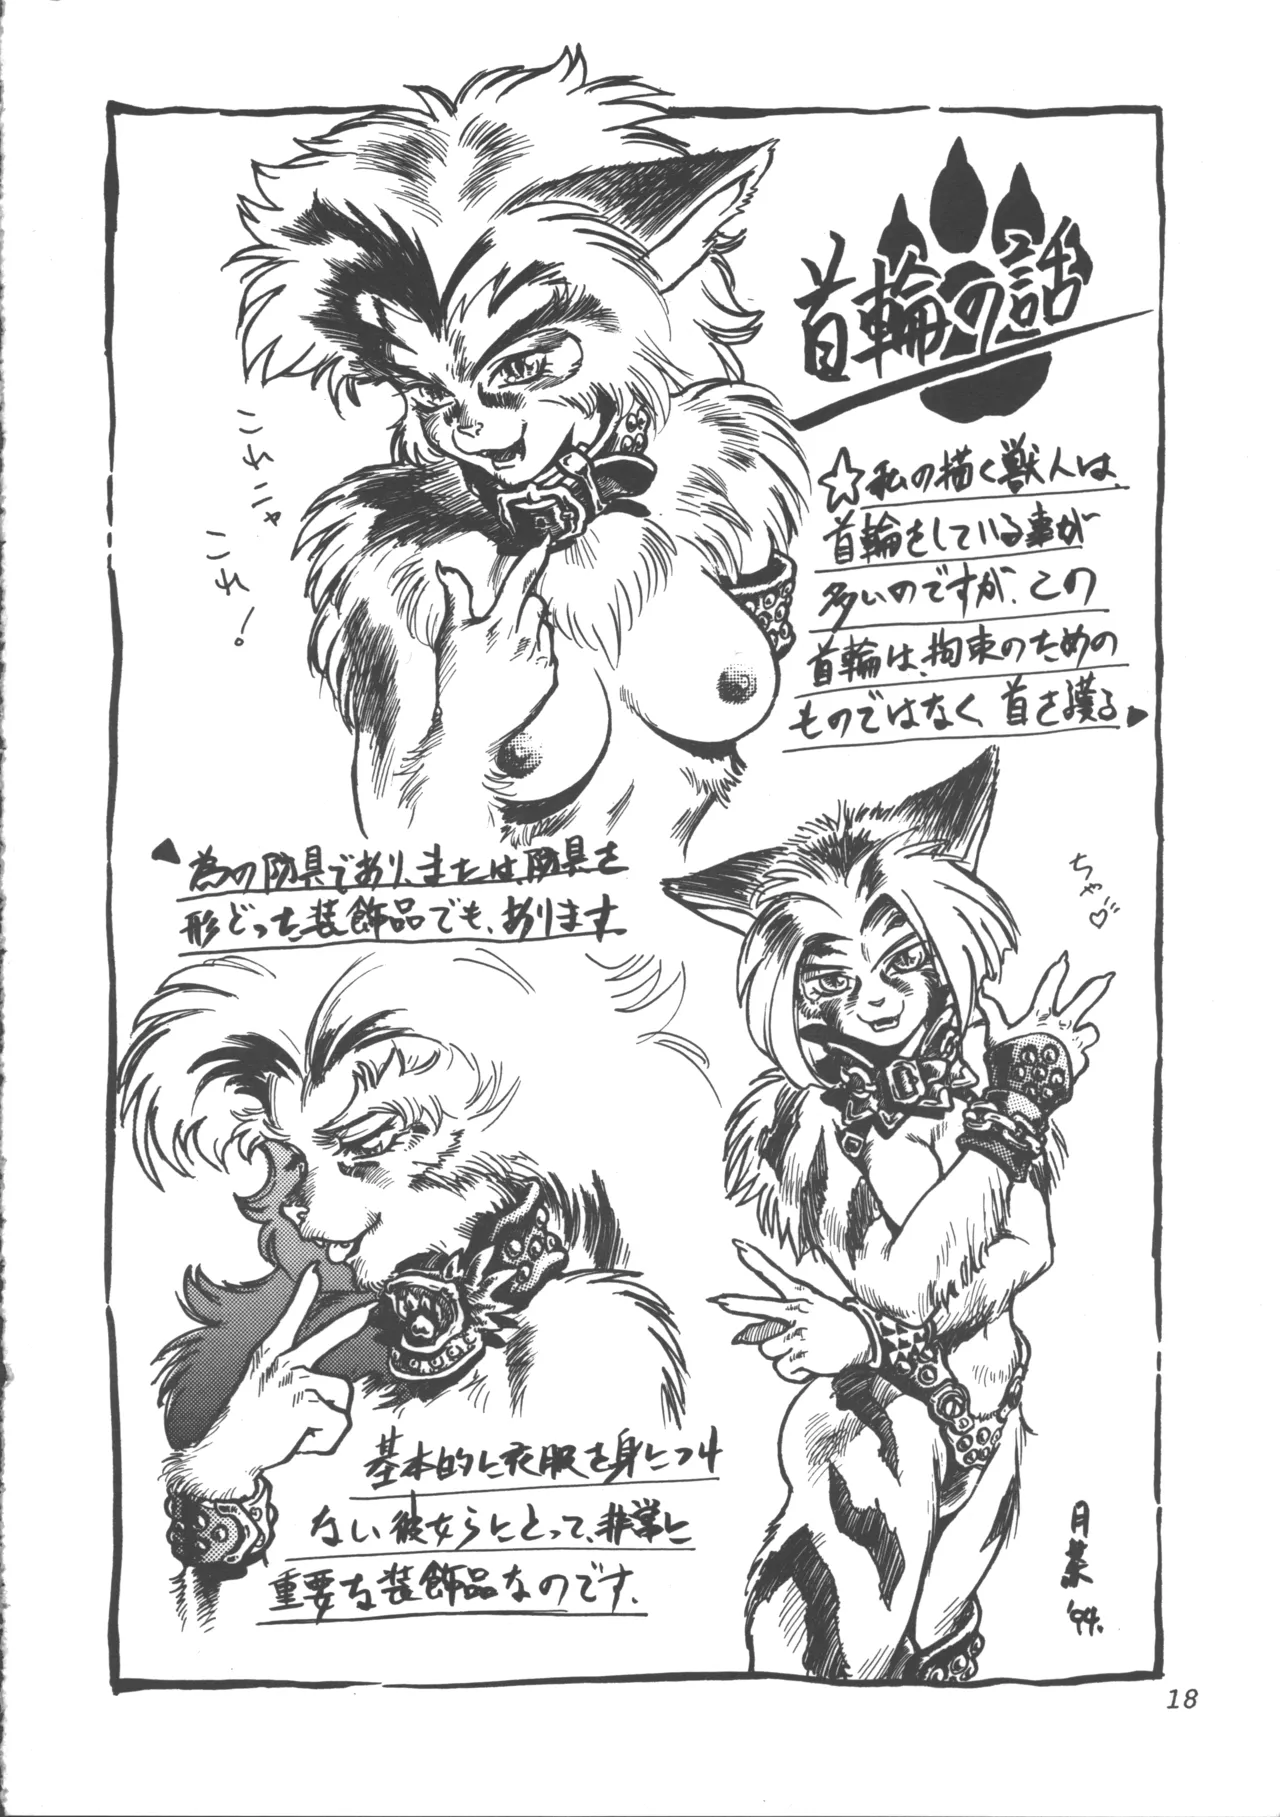 首輪の話
☆私の描く獣人は、
首輪をしている事が
多いのですが、この
首輪は、拘束のための
ものではなく、首を護る
為の防具であり、または、防具を
形どった装飾品でも、あります
コチニャ
コチ!
ちゃ♡
基本的に衣服を身につけ
ない彼女らにとって、非常に
重要な装飾品なのです。
'94.
18